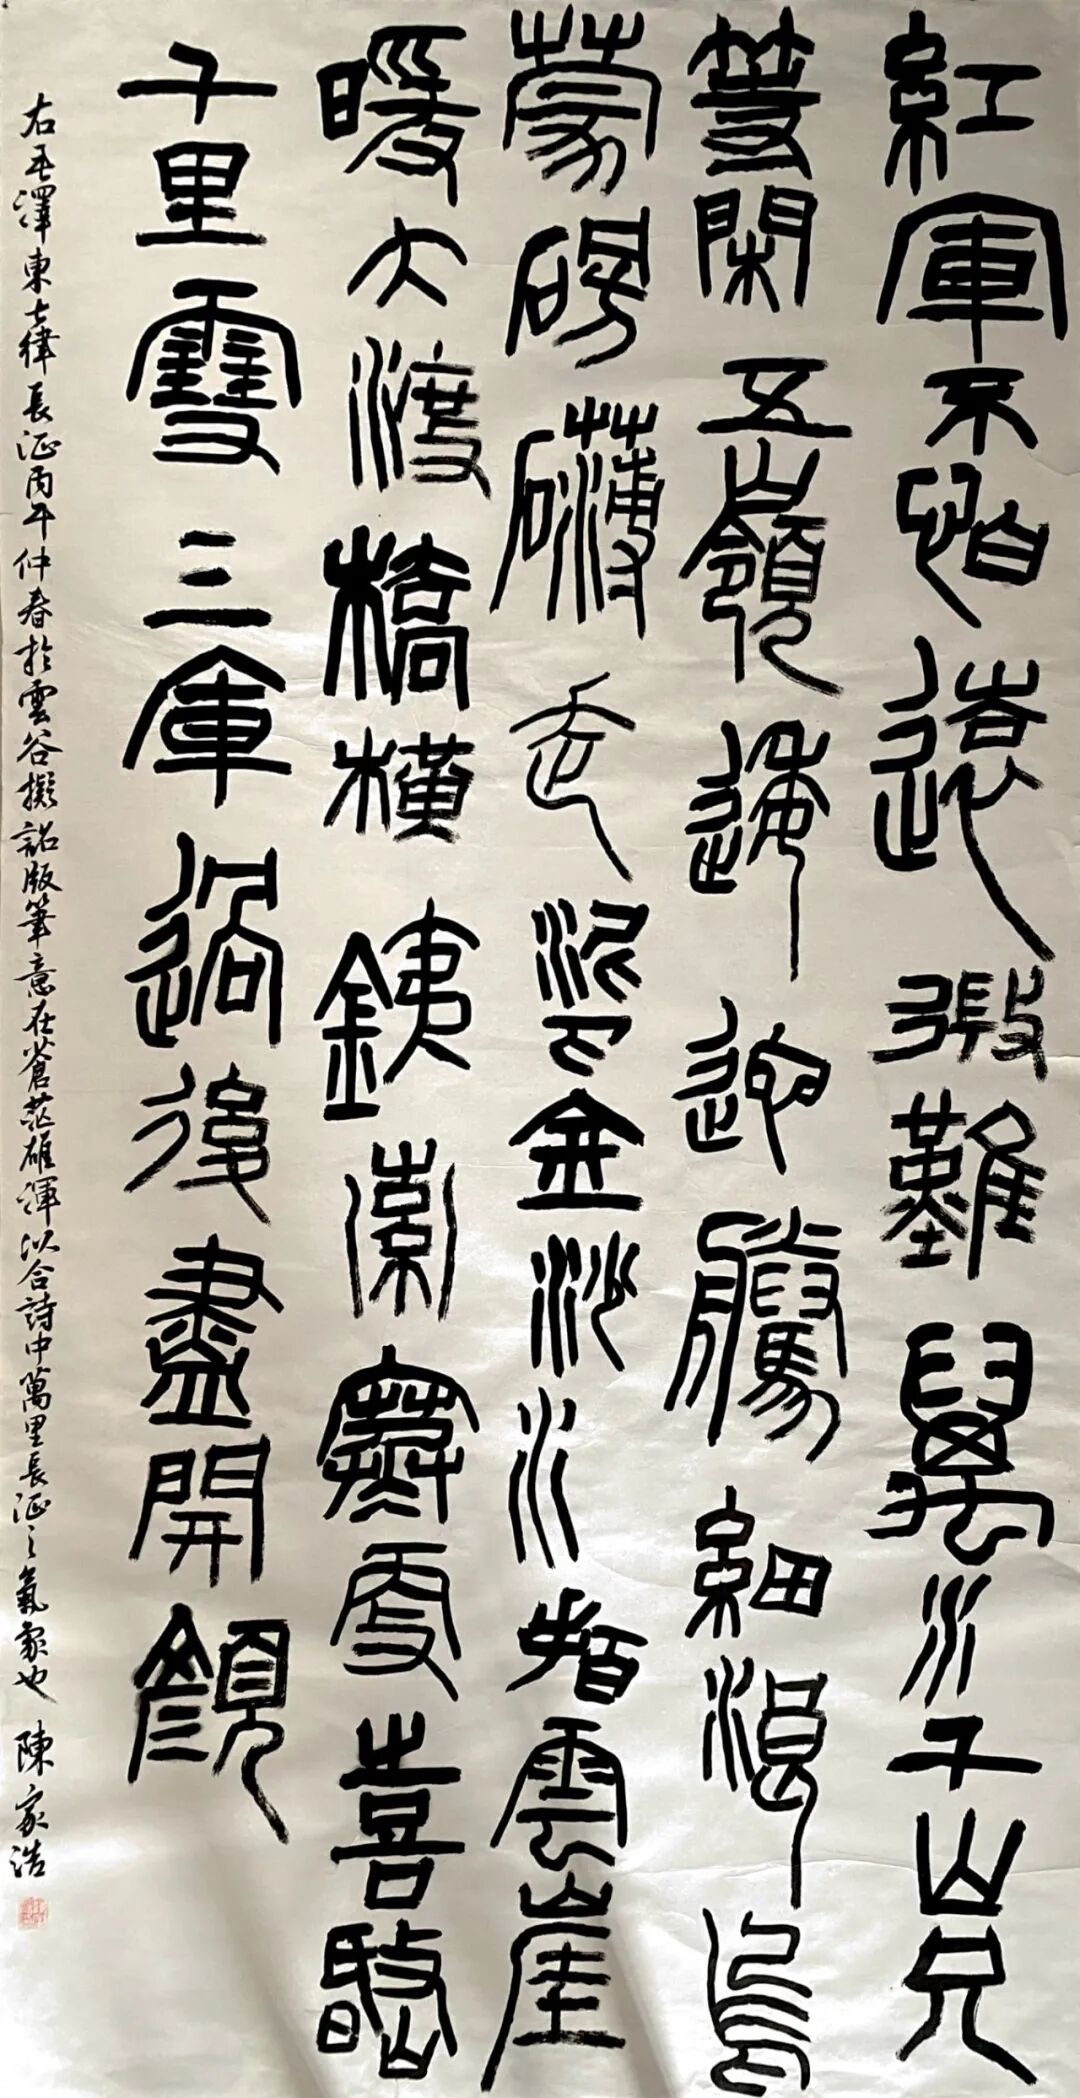 紅軍不怕遠徵難萬水千山只
等閑五嶺逶迤騰細浪烏
蒙磅礴走泥丸金沙水拍雲崖
暖大渡橋橫鐵索寒更喜岷山
千里雪三軍過後盡開顏
右毛澤東七律長征丙午仲春於雲谷擬詔版筆意在蒼茫雄渾以合詩中萬里長征之氣象也 陳家浩